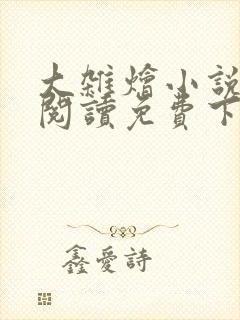 大雜燴小說
閱讀免費下
鑫愛詩